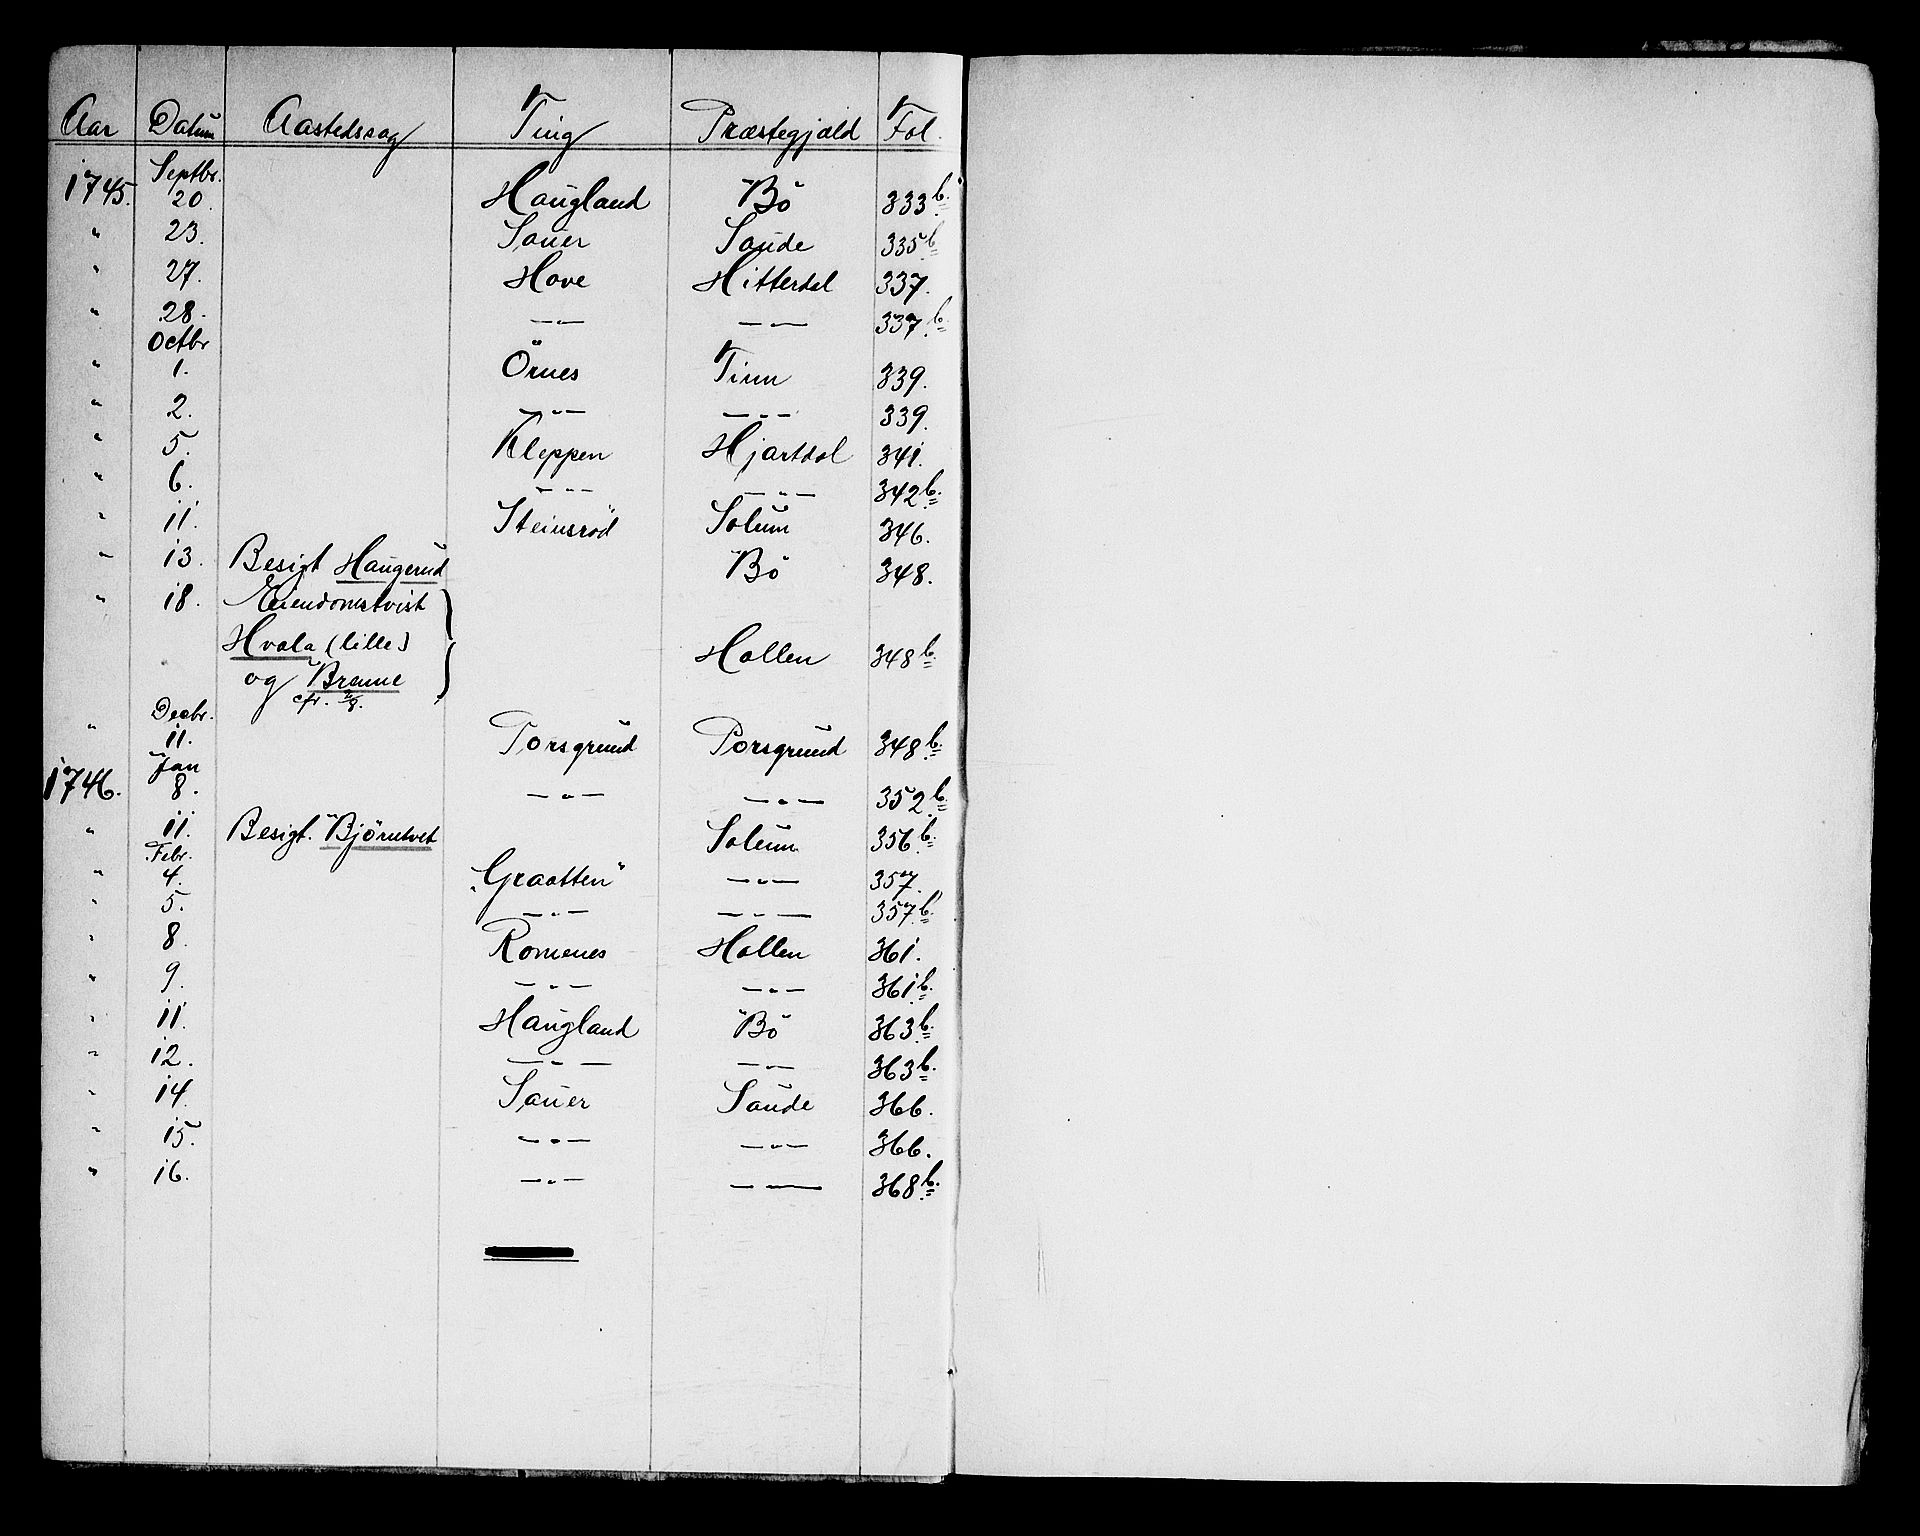 Aar Datum Aastedssag Ting Præstegjæld Fol.
Septbr.
1745. 20. Haugland Bö 333 b.
" 23. Sauer Saude 335 b.
" 27. Hove Hitterdal 337.
" 28. —"— —"— 337 b.
Octbr
" 1. Örnes Tinn 339.
" 2. —"— —"— 339.
" 5. Kleppen Hjartdal 341.
" 6. —"— —"— 342 b.
" 11. Steinsröd Solum 346.
" 13. Besigt Haugerud Bö 348.
" 18. Eiendomstvist
Hvala (lille) Hollen 348 b.
og Brenne
cfr. 2/8.
Decbr.
" 11. Porsgrund Porsgrund 348 b.
Jan
1746. 8. —"— —"— 352 b.
" 11. Besigt. Björntvet Solum 356 b.
Febr.
" 4. „Graatten" —"— 357.
" 5. —"— —"— 357 b.
" 8. Romenes Hollen 361.
" 9. —"— —"— 361 b.
" 11. Haugland Bö 363 b.
" 12. —"— —"— 363 b.
" 14. Sauer Saude 366.
" 15. —"— —"— 366.
" 16. —"— —"— 368 b.